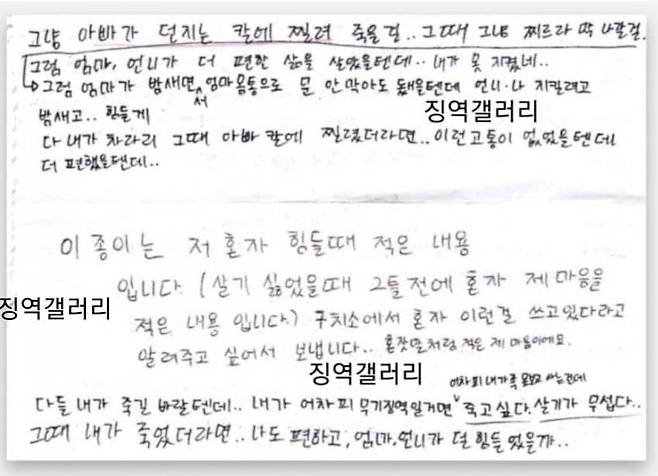 그냥 아빠가 던지는 칼에 찔려 죽을걸.. 그때 그냥 찌르라 딱 나갈걸.
그럼 엄마, 언니가 더 편한 삶을 살았을텐데.. 내가 못 지켰네..
그럼 엄마가 밤새면서 엄마몸통으로 문 안 막아도 됐을텐데 언니·나 지킬려고
밤새고.. 힘들게
징역갤러리
다 내가 차라리 그때 아빠 칼에 찔렸더라면.. 이런고통이 없었을텐데
더 편했을텐데..
이 종이는 저 혼자 힘들때 적은 내용
입니다. (살기 싫었을때 그틀전에 혼자 제 마음을
징역갤러리
적은 내용 입니다.) 구치소에서 혼자 이런걸 쓰고있다라고
알려주고 싶어서 보냅니다.. 혼잣말처럼 적은 제 마음이에요.
징역갤러리
어차피 내가 죽
다들 내가 죽길 바랄텐데.. 내가 어차피 무기징역일거면 죽고싶다. 살기가 무섭다..
그때 내가 죽었더라면.. 나도 편하고, 엄마,언니가 덜 힘들었을까..